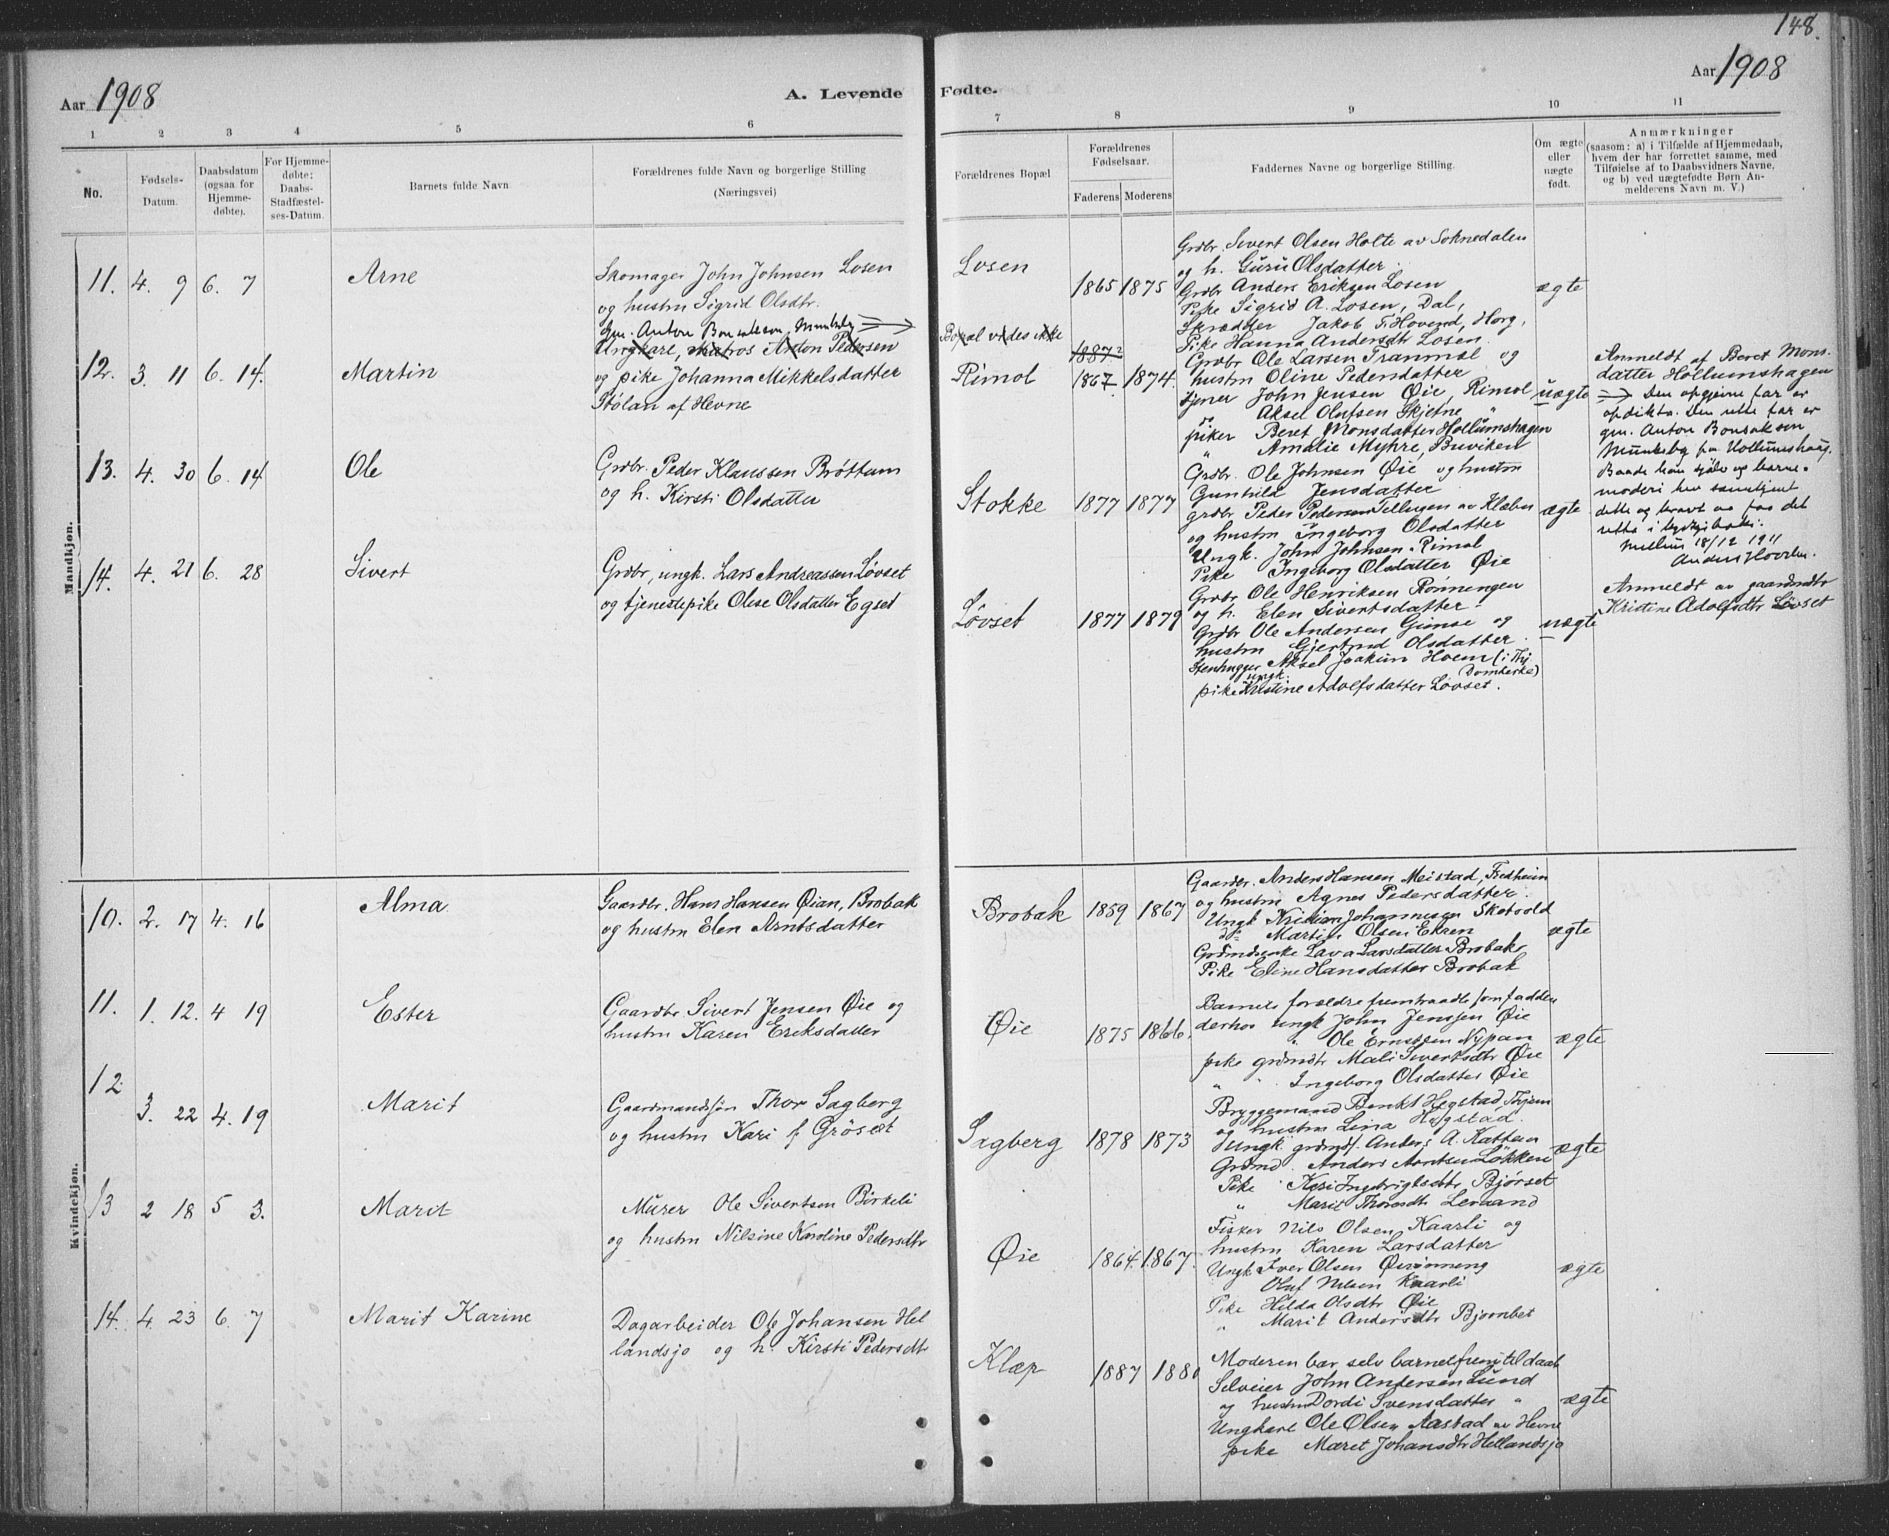 148.
Aar 1908
A. Levende Fødte.
Aar 1908
1 2 3 4 5 6 7 8 9 10 11
No.
Fødsels-
Datum.
Daabsdatum
(ogsaa for
Hjemme-
døbte).
For Hjemme-
døbte:
Daabs-
Stadfæstel-
ses-Datum.
Barnets fulde Navn
Forældrenes fulde Navn og borgerlige Stilling
(Næringsvei)
Forældrenes Bopæl.
Forældrenes
Fødselsaar.
Faderens Moderens
Faddernes Navne og borgerlige Stilling.
Om ægte
eller
uægte
født.
Anmærkninger
(saasom: a) i Tilfælde af Hjemmedaab,
hvem der har forrettet samme, med
Tilføielse af to Daabsvidners Navne,
og b) ved uægtefødte Børn An-
melderens Navn m. V.)
Mandkjøn.
11. 4. 9 6. 7
Arne
Skomager John Johnsen Losen
og hustru Sigrid Olsdtr.
Losen
1865 1875
Grdbr. Sivert Olsen Holte av Soknedalen
og h. Guru Olsdatter.
Grdbr Anders Eriksen Losen
Pike Sigrid A. Losen, Dal,
Skrædder Jakob T. Hovend, Horg,
Pike Hanna Andersdtr Losen.
ægte
12. 3. 11 6. 14.
Martin
gm. Anton Bonsaksen Munkeby
Ungkare, matros Anton Pedersen
og pike Johanna Mikkelsdatter
Stølan af Hevne
Bopæl vides ikke
Rimol
1887?
1867. 1874.
Grdbr Ole Larsen Tranmæl og
hustru Oline Pedersdatter
tjener John Jensen Øie, Rimol
Aksel Olufsen Skjetne "
piker Beret Monsdatter Hollumshagen
" Amalie Myhre, Buviken
uægte
Anmeldt af Beret Mons-
datter Hollumshagen
Den opgjevne far er
opdikta. Den rette far er
gm. Anton Bonsaksen
Munkeby fra Hollumshaug.
Baade han sjølv og barne-
moderi hev samtykt
dette og kravt aa faa det
retta i kyrkjeboki.
Melhus 18/12 1911
Anders Hovden.
13. 4. 30 6. 14
Ole
Grdbr. Peder Klaussen Brøttum
og h. Kirsti Olsdatter
Stokke
1877 1877
Grdbr. Ole Johnsen Øie og hustru
Gunhild Jensdatter
grdbr Peder Pedersen Tellugen av Klæbu
og hustru Ingeborg Olsdatter
Ungk. John Johnsen Rimol
Pike Ingeborg Olsdatter Øie
ægte
14. 4. 21 6. 28
Sivert
Grdbr, ungk. Lars Andreassen Løvset
og tjenestepike Olise Olsdatter Egset
Løvset
1877 1879
Grdbr Ole Henriksen Rønningen
og h. Elen Sivertsdatter
Grdbr Ole Andersen Gimse og
hustru Gjertrud Olsdatter
Stenhugger Aksel Joakim Hoem (i Thj.
ungk. Domkirke)
pike Kristine Adolfsdatter Løvset.
uægte
Anmeldt av gaardmdtr
Kristine Adolfsdtr Løvset
Kvindekjøn.
10. 2. 17 4. 16
Alma
Gaardbr. Hans Hansen Øian, Brobak
og hustru Elen Arntsdatter
Brobak
1859 1867
Gaardbr. Anders Hansen Meistad, Fredheim
og hustru Agnes Pedersdatter.
Ungk Kristian Johannesen Skotvold
do Martin Olsen Ekren
Grdmdenke Lava Larsdatter Brobak
Pike Eline Hansdatter Brobak
ægte
11. 1. 12. 4 19
Ester
Gaardbr Sivert Jensen Øie og
hustru Karen Eriksdatter
Øie
1875 1866.
Barnets forældre fremtraadte som faddere
derhos ungk John Jenssen Øie
" Ole Ernstsen Nypan
pike grdmdtr Mali Sivertsdtr Øie
" " Ingeborg Olsdatter Øie
ægte
12. 3. 22 4. 19
Marit
Gaardmandssøn Thor Sagberg
og hustru Kari f. Grøset
Sagberg
1878 1873
Bryggemand Benkt Hegstad, Thjem
og hustru Lina Hegstad.
Ungk. grdmds. Anders A. Kattem
Grdmd. Anders Arntsen Løkken
Pike Kari Ingebrigtsdtr Bjørset
" Marit Thoresdtr Lemand
ægte
13 2 18 5 3.
Marit
Murer Ole Sivertsen Birkeli
og hustru Nilsine Karoline Pedersdtr
Øie
1864. 1867.
Fisker Nils Olsen Kaarli og
hustru Karen Larsdatter
Ungk Iver Olsen Øirønning
Oluf Nilsen Kaarli
Pike Hilda Olsdtr Øie
" Marit Andersdtr Bjørnbet
ægte
14. 4. 23 6. 7
Marit Karine
Dagarbeider Ole Johansen Hel
landsjø og h. Kirsti Pedersdtr
Klæp
1887 1880
Moderen bar selv barnet frem til daab
Selveier John Andersen Lund
og hustru Dordi Svensdatter "
Ungkare Ole Olsen Aastad av Hevne
pike Maret Johansdtr Hellandsjø
ægte